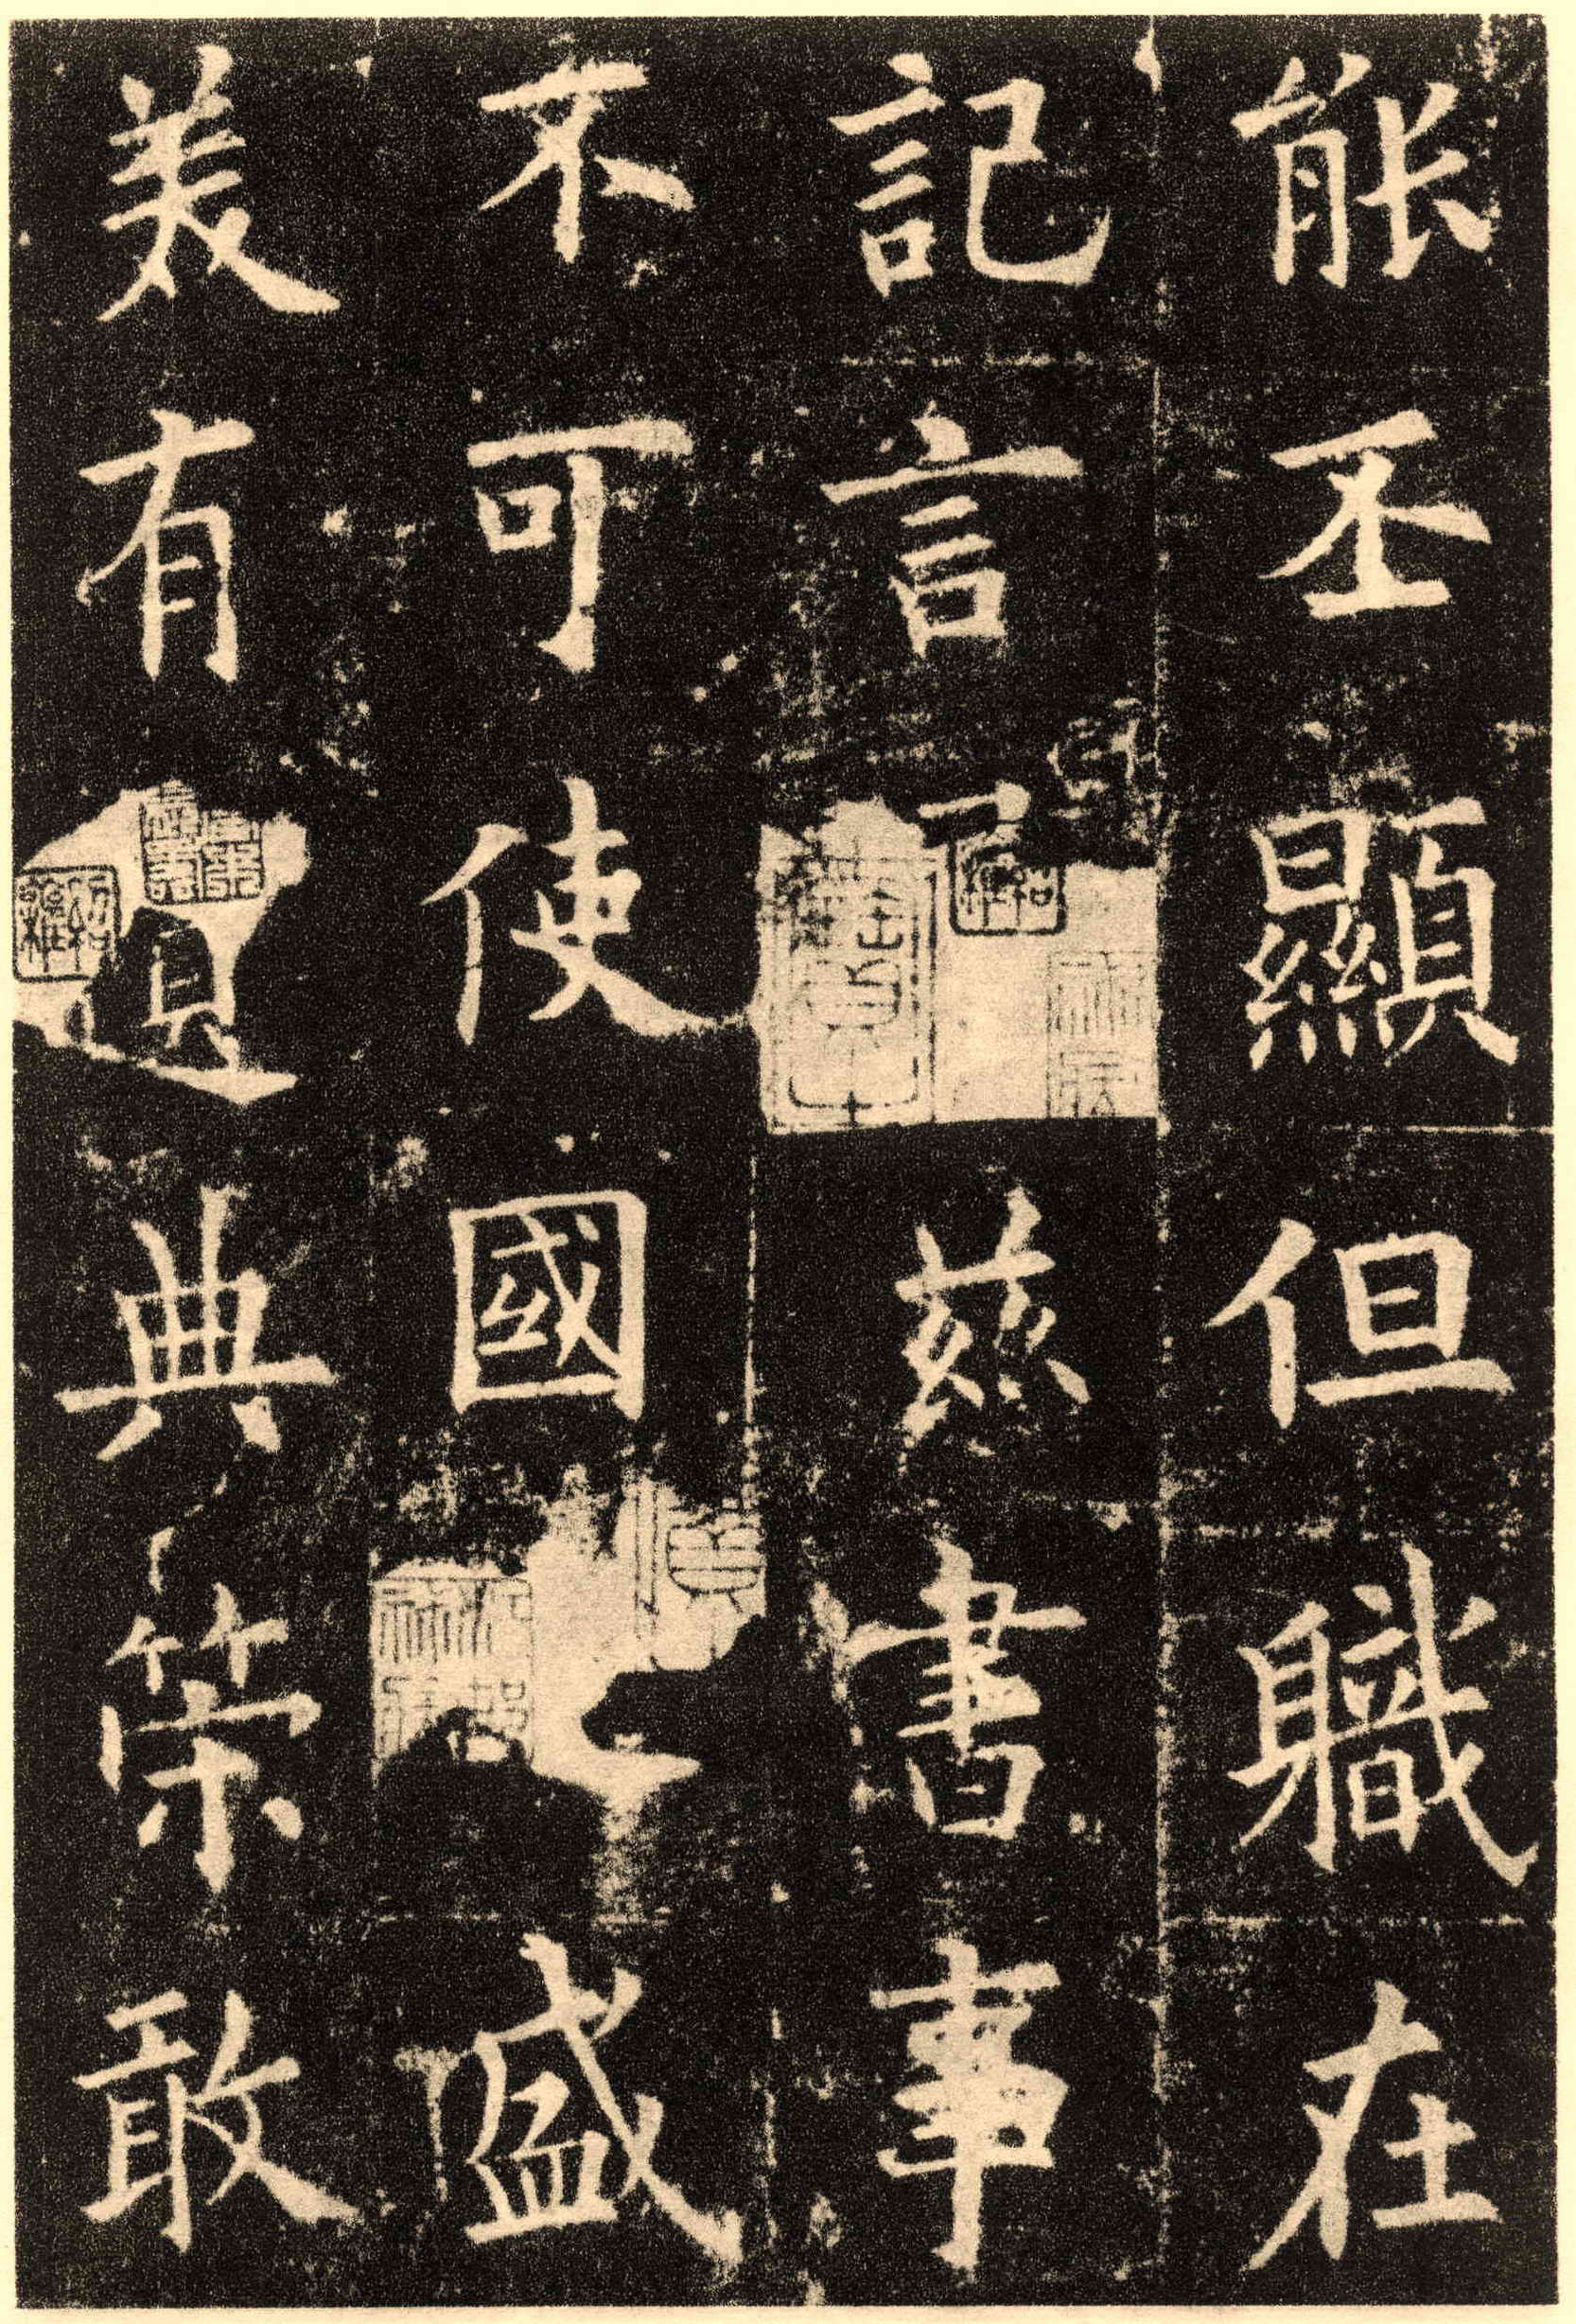 能丕顯但職在
記言　茲書事
不可使國　盛
美有　典策敢